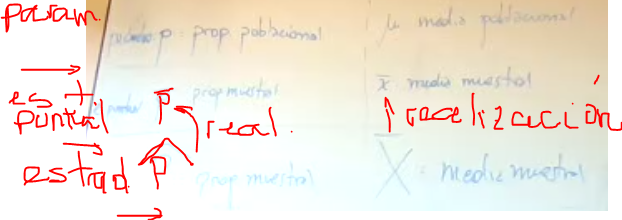 param.
p: prop. poblacional μ media poblacional
est puntual p̄ prop muestral x̄ media muestral
real. ↑ realización
estrad. P̂ prop muestral X̄ = media muestral